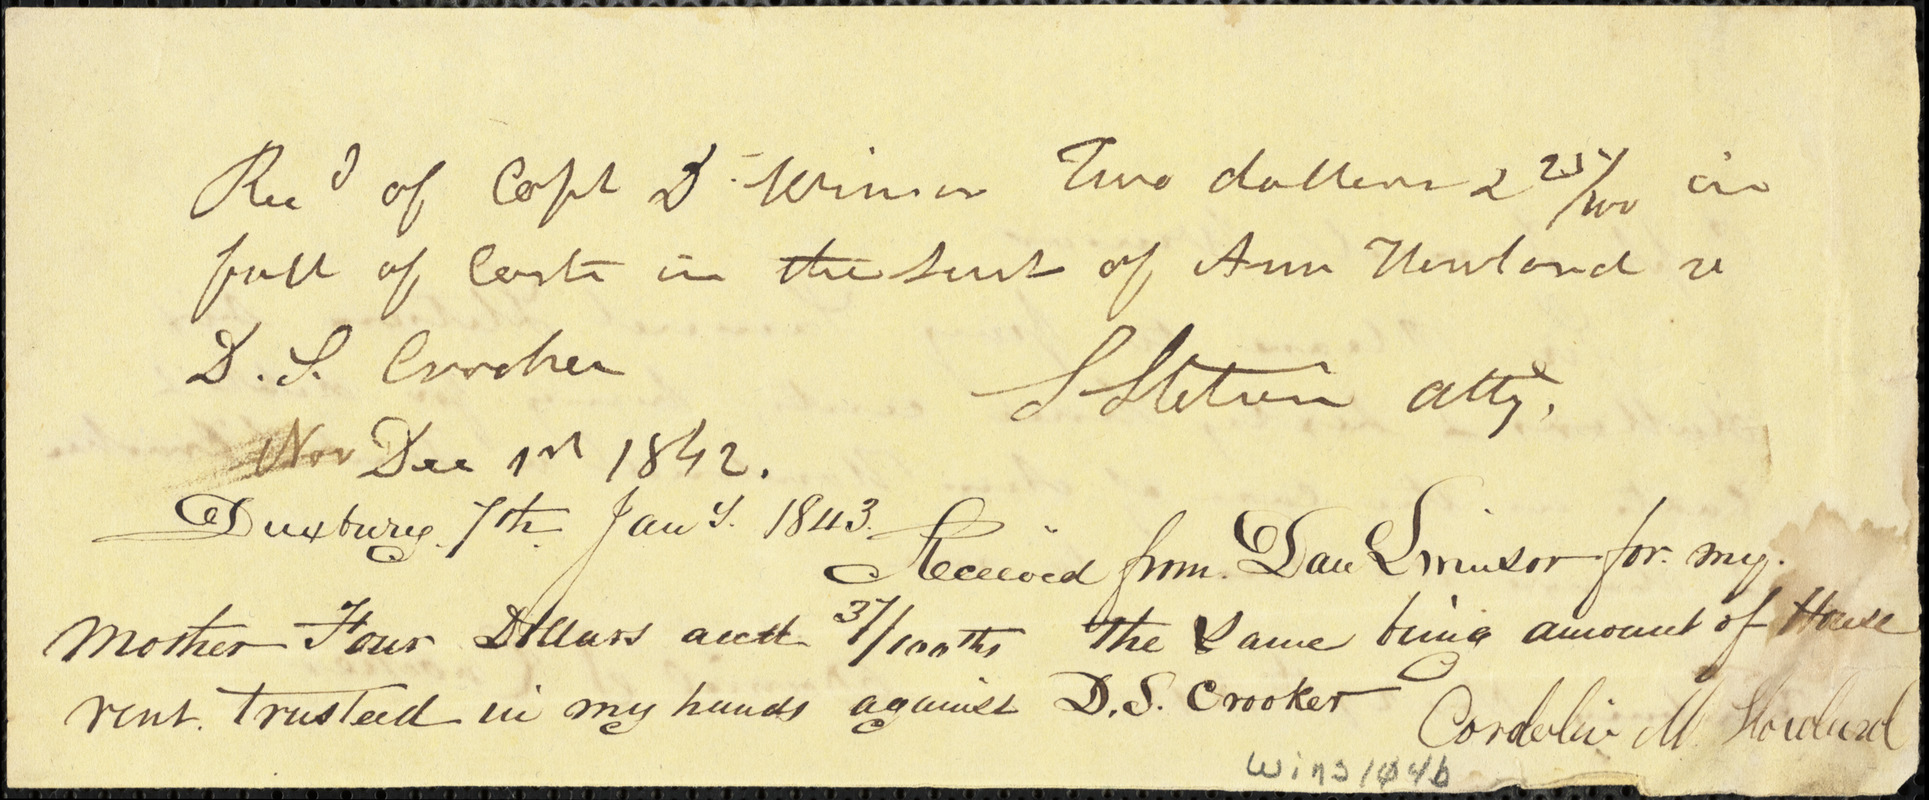 Recd of Capt D. Winsor Two dollars 2 25/100 in
full of Costs in the suit of Ann Howland vs
D. S. Crooker
S Stetson atty.
Nov Dec 1st 1842.
Duxbury. 7th Jany. 1843. Received from. Dan L Winsor for. my.
Mother Four Dollars and 37/100ths The Same being amount of House
rent. trusteed in my hands against D. S. Crooker
Cordelia M. Howland
Wins 1046